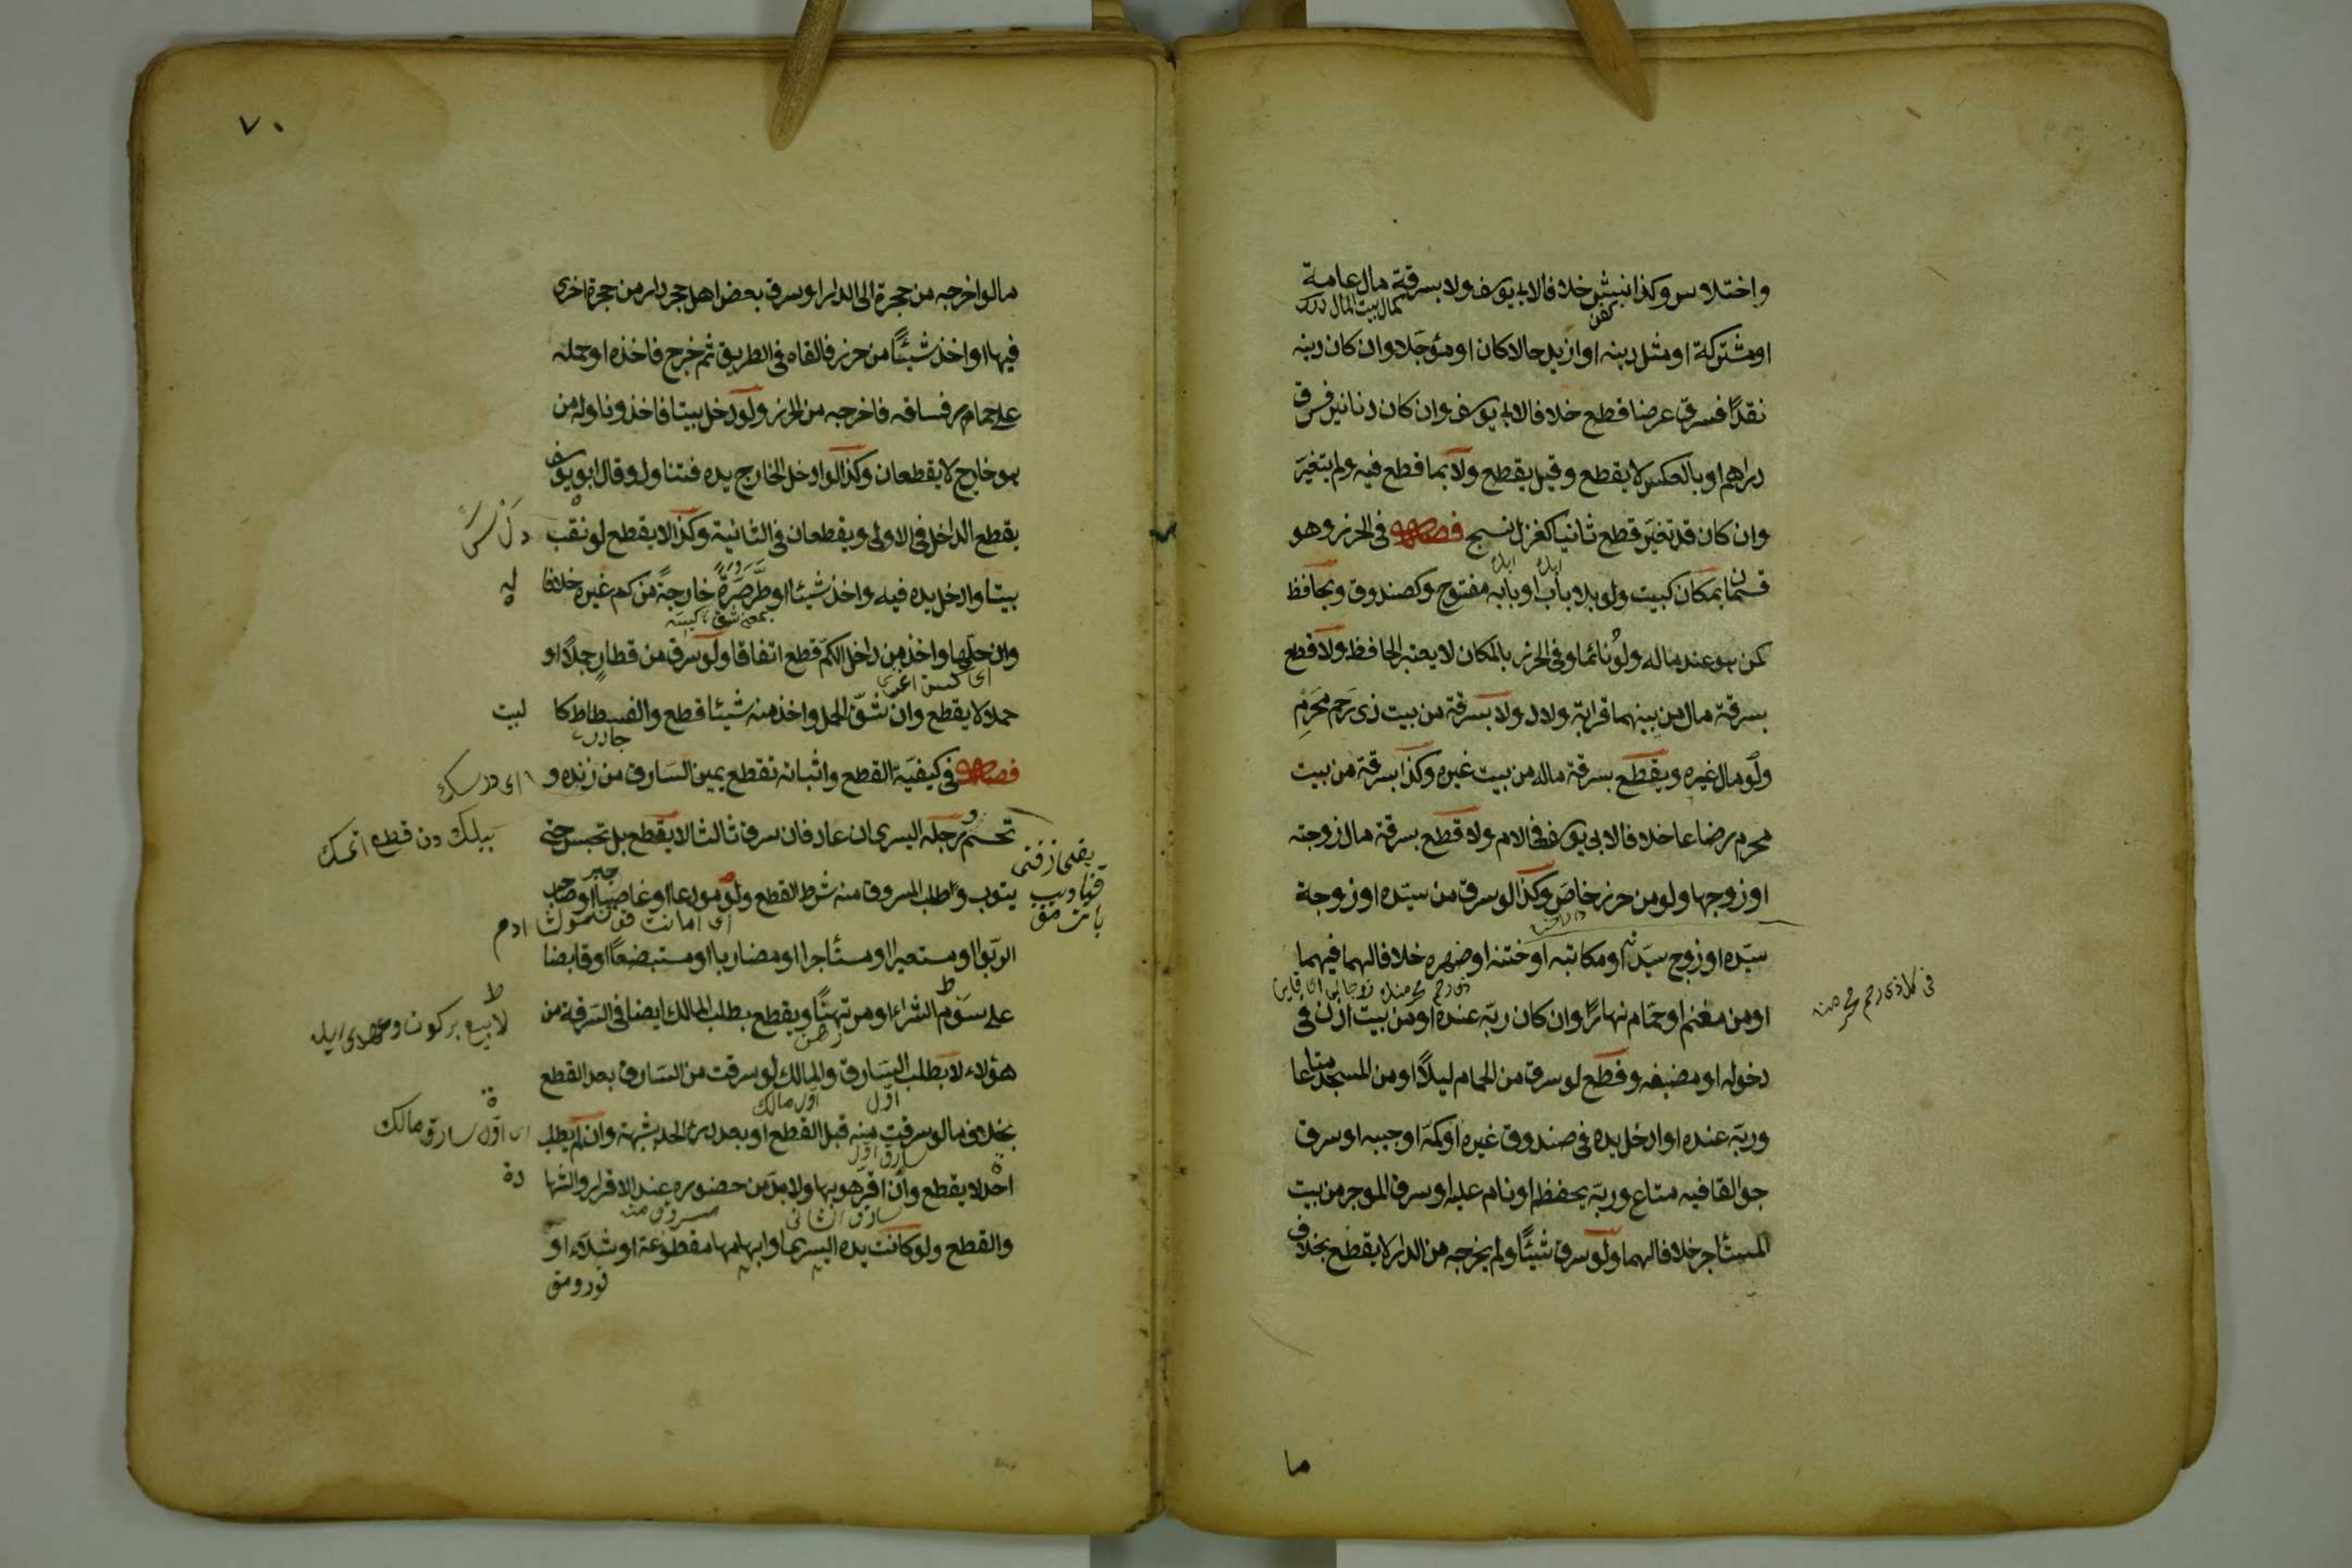 واختلاس وكذا نبش خلافا لابي يوسف ولا بسرقة مال عامة
كفن
كمال بيت المال
او مشتركة او مثل دينه او ازيد حالا كان او مؤجلا وان كان دينه
نقدا فسرق عرضا قطع خلافا لابي يوسف وان كان دنانير فسرق
دراهم او بالعكس لا يقطع وقيل يقطع ولا بما قطع فيه ولم يتغير
وان كان قد تغير قطع ثانيا كغزل نسج فصل في الحرز وهو
قسمان بمكان كبيت ولو بلا باب او بابه مفتوح وكصندوق وبحافظ
كمن هو عند ماله ولو نائما وفي الحرز بالمكان لا يعتبر الحافظ ولا قطع
بسرقة مال من بينهما قرابة ولاد ولا بسرقة من بيت ذي رحم محرم
ولو مال غيره ويقطع بسرقة ماله من بيت غيره وكذا بسرقة من بيت
محرم رضاعا خلافا لابي يوسف في الام ولا قطع بسرقة مال زوجته
او زوجها ولو من حرز خاص وكذا لو سرق من سيده او زوجة
سيده او زوج سيدته او مكاتبه او ختنه او صهره خلافا لهما فيهما
او من مغنم او حمام نهارا وان كان ربه عنده او من بيت اذن في
دخوله او مضيفه وقطع لو سرق من الحمام ليلا او من المسجد متاعا
وربه عنده او ادخل يده في صندوق غيره او كمه او جيبه او سرق
جوالقا فيه متاع وربه يحفظه او نام عليه او سرق الموجر من بيت
المستأجر خلافا لهما ولو سرق شيئا ولم يخرجه من الدار لا يقطع بخلاف
ما
٧٠
ما لو اخرجه من حجرة الى الدار او سرق بعض اهل حجر دار من حجرة اخرى
فيها او اخذ شيئا من حرز فالقاه في الطريق ثم خرج فاخذه او حمله
على حمار فساقه فاخرجه من الحرز ولو دخل بيتا فاخذ وناوله من
هو خارج لا يقطعان وكذا لو ادخل الخارج يده فتناول وقال ابو يوسف
يقطع الداخل في الاولى ويقطعان في الثانية وكذا لا يقطع لو نقب
بيتا وادخل يده فيه واخذ شيئا او طر صرة خارجة من كم غيره خلافا
له
وان حلها واخذ من داخل الكم قطع اتفاقا ولو سرق من قطار جملا او
حملا لا يقطع وان شق الحمل واخذ منه شيئا قطع والفسطاط كا
لبيت
فصل في كيفية القطع واثباته تقطع يمين السارق من زنده و
تحسم ورجله اليسرى ان عاد فان سرق ثالثا لا يقطع بل تحبس حتى
يتوب وطلب المسروق منه شرط القطع ولو مودعا او غاصبا او صاحب
الربوا او مستعيرا او مستأجرا او مضاربا او مستبضعا او قابضا
على سوم الشراء او مرتهنا ويقطع بطلب المالك ايضا في السرقة من
رهن
هؤلاء لا بطلب السارق والمالك لو سرقت من السارق بعد القطع
اول
اول مالك
بخلاف ما لو سرقت منه قبل القطع او بعد درئ الحد بشبهة وان لم يطلب
اول سارق مالك
سارق اول
احد لا يقطع وان اقر هو بها ولا بد من حضوره عند الاقرار والشها
دة
سارق الثاني
مسروق منه
والقطع ولو كانت يده اليسرى او ابهامها مقطوعة او شلاء او